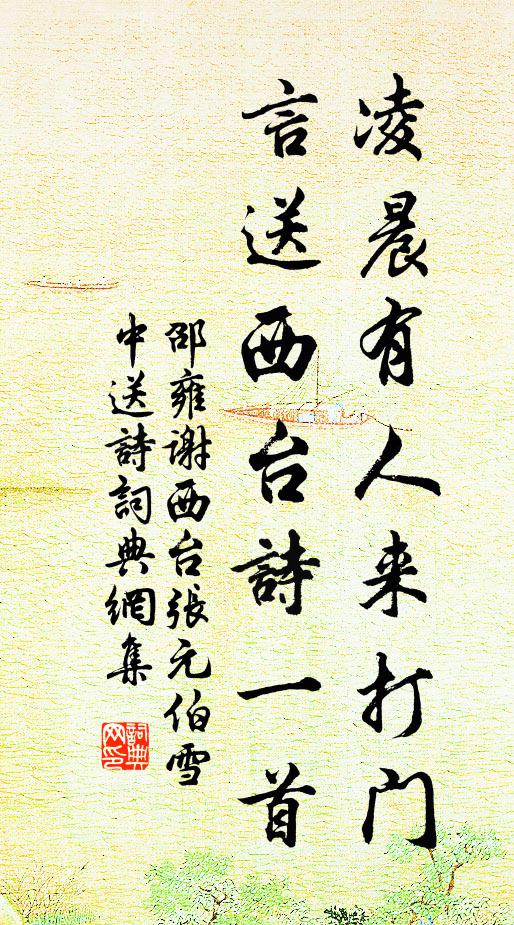 凌晨有人来打门
言送西台詩一首
邵雍谢西台張元伯雪
中送詩詞典網集
詞典网印